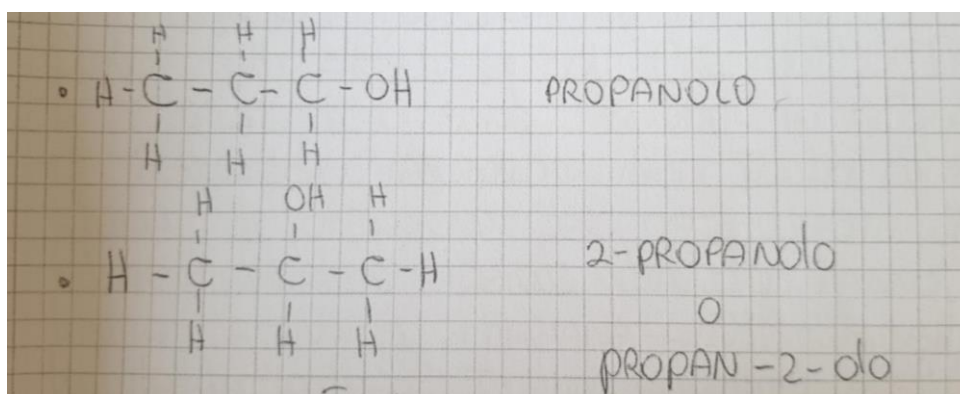 H H H
• H-C-C-C-OH PROPANOLO
H H H
H OH H
• H-C-C-C-H 2-PROPANOLO
O
H H H
PROPAN-2-OLO